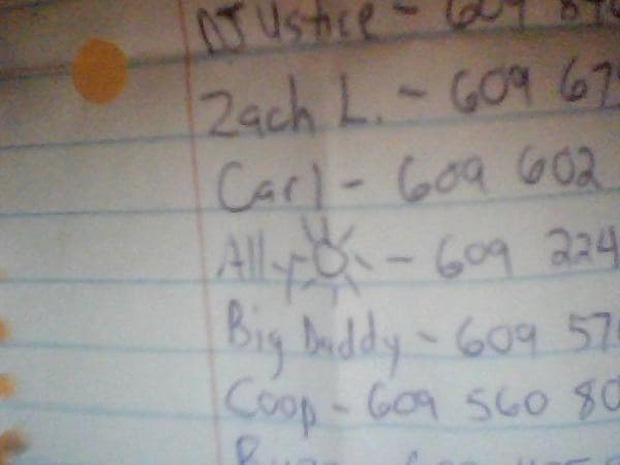 Justice - 609
Zach L. - 609 67
Carl - 609 602
All - 609 224
Big Daddy - 609 57
Coop - 609 560 80